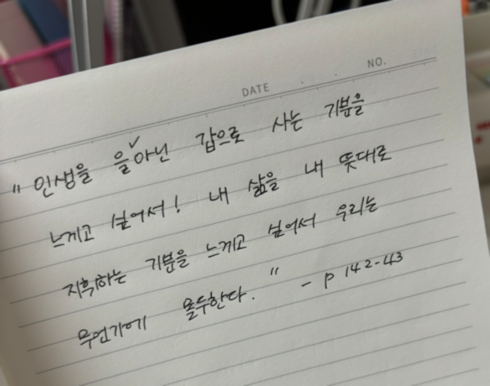 DATE . . NO.
" 인생을 을∨아닌 갑으로 사는 기분을
느끼고 싶어서! 내 삶을 내 뜻대로
지휘하는 기분을 느끼고 싶어서 우리는
무언가에 몰두한다. " - p 142-43